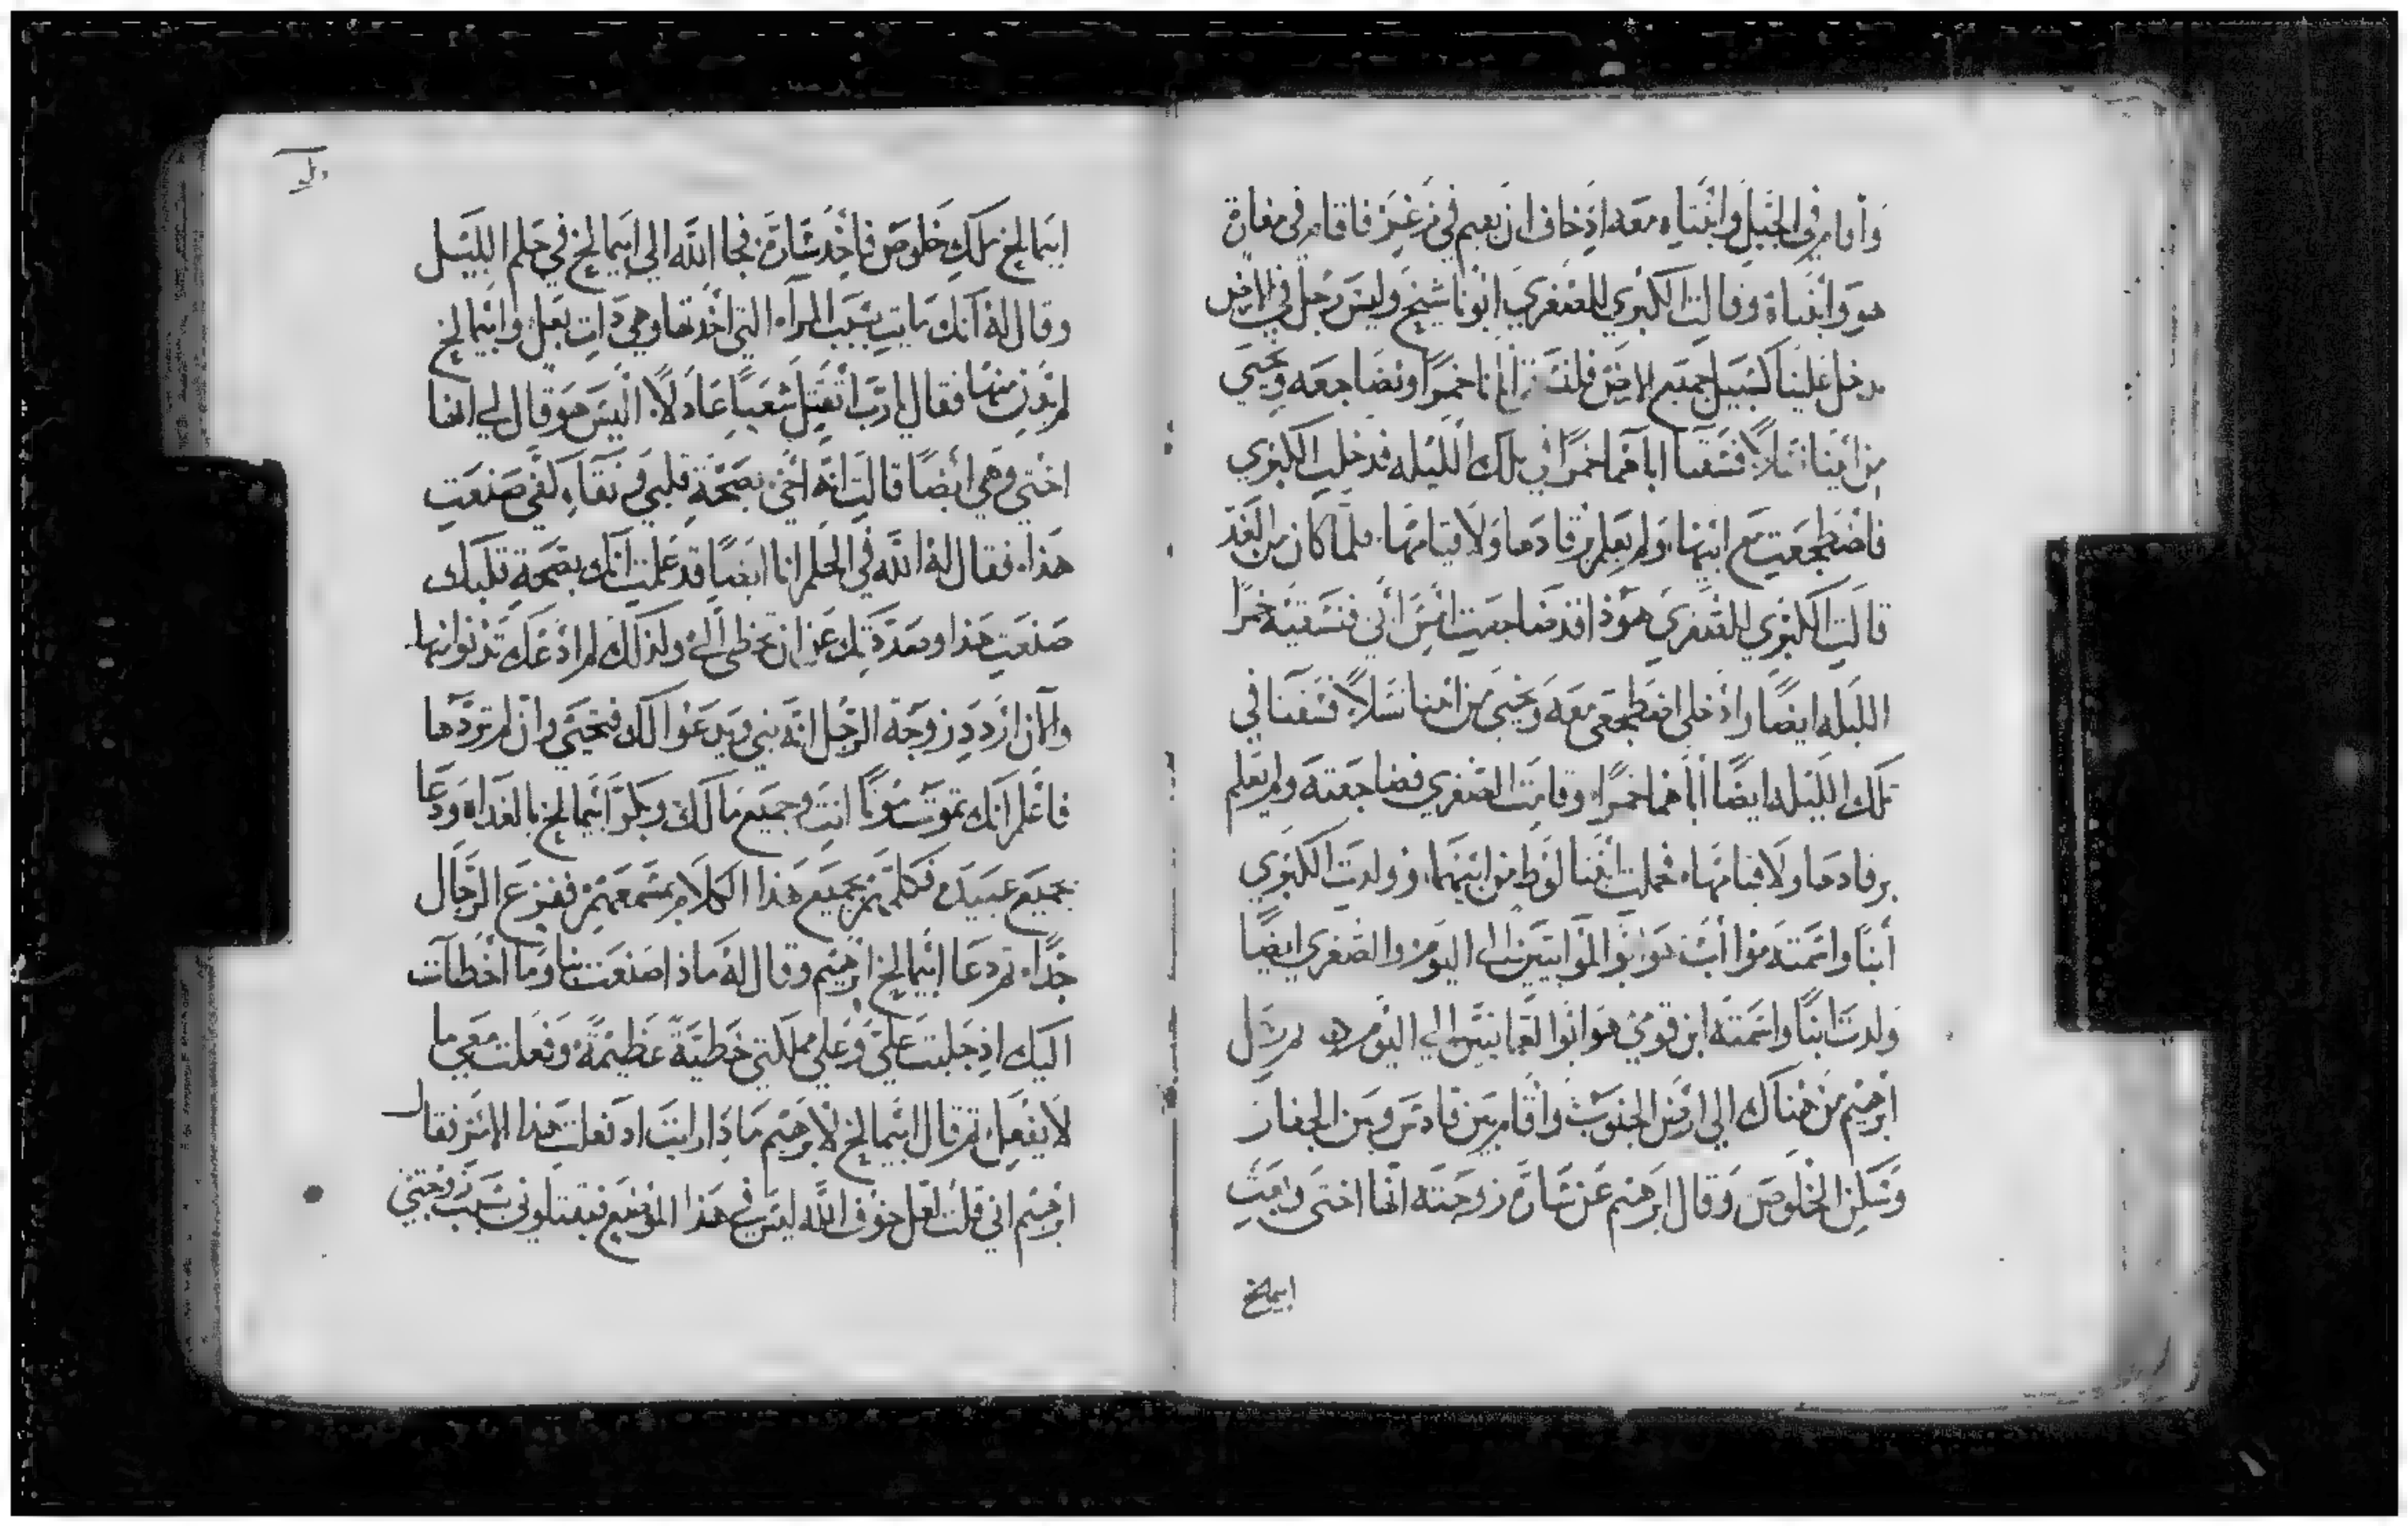 وأقام في الجبل وابنتاه معه اذ خاف ان يقيم في زغر فاقام في مغارة
هو وابنتاه وقالت الكبري للصغري ابونا شيخ وليس رجل في الارض
يدخل علينا كسبيل جميع الارض فلنسق ابانا خمرًا ونضاجعه ونحيي
من ابينا نسلاً فسقتا اباهما خمرًا في تلك الليله فدخلت الكبري
فاضطجعت مع ابيها ولم يعلم برقادها ولا قيامها فلما كان من الغد
قالت الكبري للصغري هوذا قد ضاجعت امس أبي فنسقيه خمرًا
الليله ايضًا وادخلي اضطجعي معه ونحيي من ابينا نسلاً فسقتا في
تلك الليله ايضًا أباهما خمرًا وقامت الصغري فضاجعته ولم يعلم
برقادها ولا قيامها فحملت ابنتا لوط من ابيهما وولدت الكبري
أبنًا واسمته موأاب هو ابو الموابيين الى اليوم والصغري ايضًا
ولدت ابنًا واسمته ابن قومي هو ابو العمانيين الي اليوم ثم رحل
ابرهيم من هناك الي ارض الجنوب وأقام بين قادس وبين الجفار
وسكن الخلوص وقال ابرهيم عن سارة زوجته انها اختى وبعث
ابيمالخ
ابيمالخ ملك خلوص فأخذ سارة فجا الله الي ابيمالخ في حلم الليل
وقال له انك مايت بسبب المرآه التي اخدتها وهي ذات بعل وابيمالخ
لم يدن منها فقال يارب اتقتل شعبًا عادلاً أليس هو قال لي انها
اختي وهي ايضًا قالت انه اخي بصحة قلبي ونقاء كفي صنعت
هذا فقال له الله في الحلم انا ايضًا قد علمت انك بصحة قلبك
صنعت هذا وصددتك عن ان تخطى الي ولذلك لم ادعك تدنوا منها
والان اردد زوجة الرجل انه نبي ويدعوا لك فتحيي وان لم تردها
فاعلم انك تموت موتًا انت وجميع مالك وبكر ابيمالخ بالغداه ودعا
بجميع عبيده فكلمهم بجميع هذا الكلام بمسمعهم ففزع الرجال
جدًا ثم دعا ابيمالخ ابرهيم وقال له ماذا صنعت بنا وما اخطآت
اليك اذ جلبت علي وعلي مملكتي خطية عظيمة وفعلت معي ما
لا يفعل ثم قال ابيمالخ لابرهيم ماذا رايت اذ فعلت هذا الامر فقال
ابرهيم اني قلت لعل خوف الله ليس في هذا الموضع فيقتلوني بسبب زوجتي